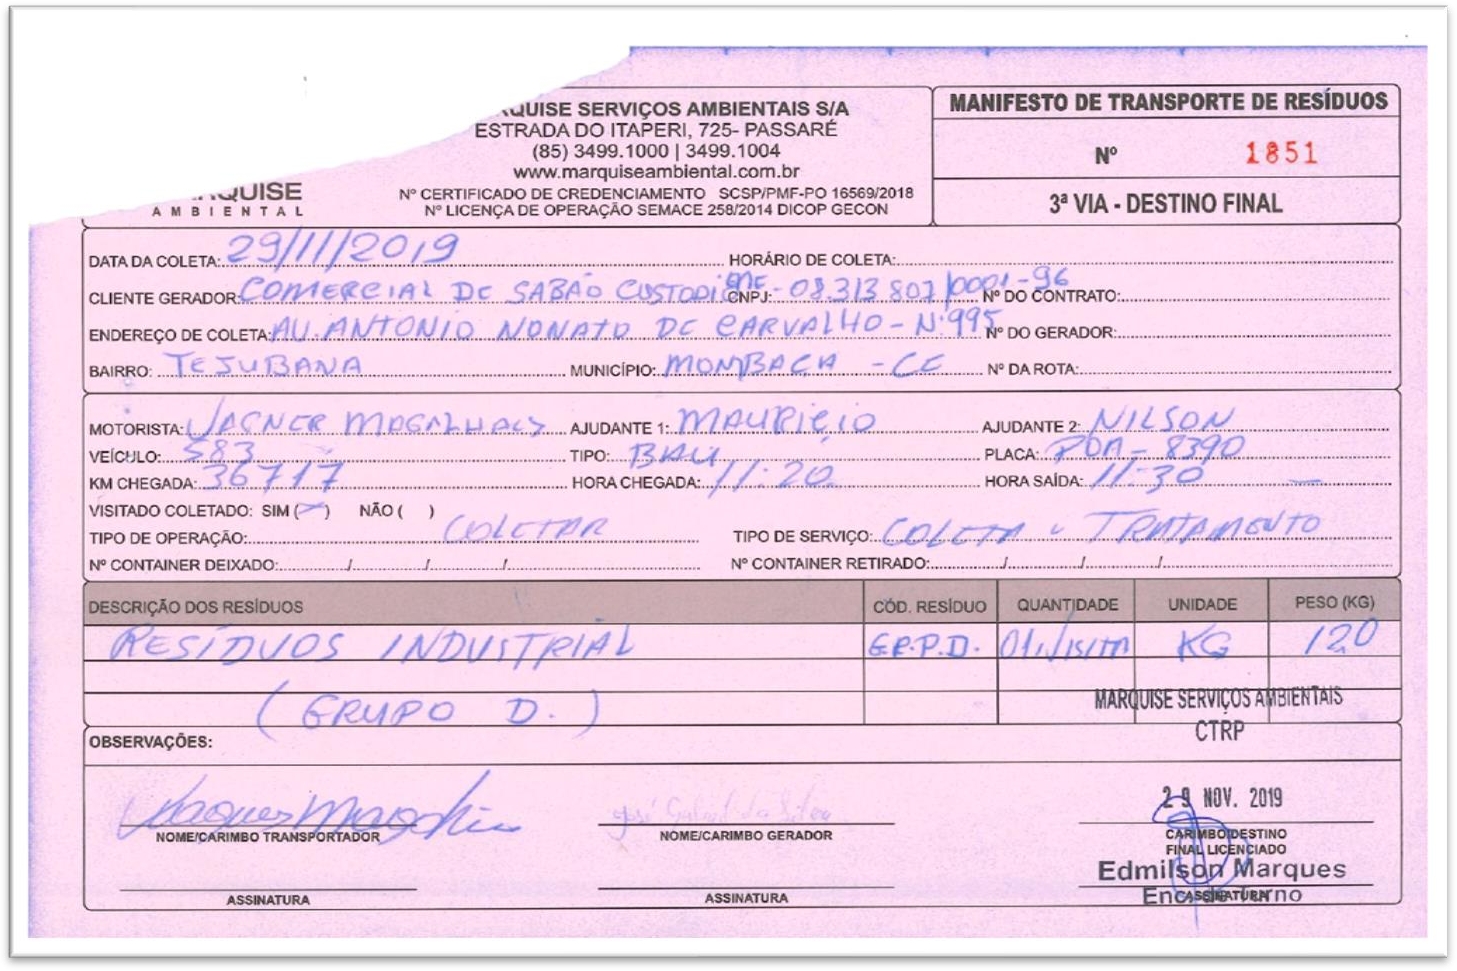 RQUISE SERVIÇOS AMBIENTAIS S/A
ESTRADA DO ITAPERI, 725- PASSARÉ
(85) 3499.1000 | 3499.1004
www.marquiseambiental.com.br
Nº CERTIFICADO DE CREDENCIAMENTO SCSP/PMF-PO 16569/2018
Nº LICENÇA DE OPERAÇÃO SEMACE 258/2014 DICOP GECON
MARQUISE
AMBIENTAL
MANIFESTO DE TRANSPORTE DE RESÍDUOS
Nº 1851
3ª VIA - DESTINO FINAL
DATA DA COLETA: 29/11/2019 HORÁRIO DE COLETA:
CLIENTE GERADOR: COMERCIAL DE SABÃO CUSTODIO CNPJ: 08.313.807/0001-96 Nº DO CONTRATO:
ENDEREÇO DE COLETA: AV. ANTONIO NONATO DE CARVALHO - Nº 995 Nº DO GERADOR:
BAIRRO: TEJUBANA MUNICÍPIO: MOMBAÇA - CE Nº DA ROTA:
MOTORISTA: MAGALHAES AJUDANTE 1: MAURICIO AJUDANTE 2: NILSON
VEÍCULO: 583 TIPO: BAU PLACA: POA-8390
KM CHEGADA: 36717 HORA CHEGADA: 11:20 HORA SAÍDA: 11:30
VISITADO COLETADO: SIM ( ) NÃO ( )
TIPO DE OPERAÇÃO: COLETAR TIPO DE SERVIÇO: COLETA e TRATAMENTO
Nº CONTAINER DEIXADO: / / / Nº CONTAINER RETIRADO: / / /
DESCRIÇÃO DOS RESÍDUOS CÓD. RESÍDUO QUANTIDADE UNIDADE PESO (KG)
RESÍDUOS INDUSTRIAL GR.P.D. 01/VISITA KG 120
(GRUPO D.)
MARQUISE SERVIÇOS AMBIENTAIS
CTRP
OBSERVAÇÕES:
29 NOV. 2019
NOME/CARIMBO TRANSPORTADOR NOME/CARIMBO GERADOR CARIMBO DESTINO
FINAL LICENCIADO
Edmilson Marques
ASSINATURA ASSINATURA ASSINATURA